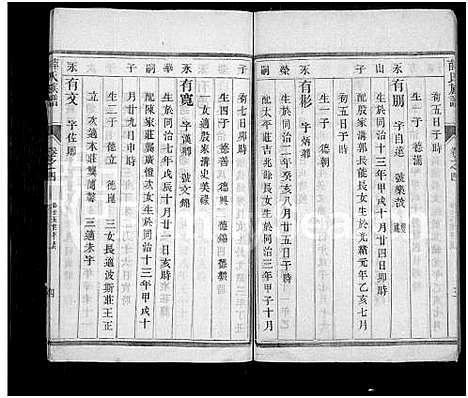 初五日子時
生一子 德漢
永山子
有朋 字自遠 號樂哉
生於同治十三年十一月廿四日卯時
配殷家溝郭長能長女生於光緒元年乙亥七月
初五日子時
永榮嗣
有彬 字炳卿
生於同治二年癸亥八月廿五日子時
配大成莊吉兆餘長女生於同治十三年甲子十月
初七日子時
生四子 德善 德興 德錦
一女適殷家溝史美淑
永華嗣
有寬 字漢卿 號文錦
生於同治七年戊辰十月廿一日亥時
配陳家莊龔廣燈次女生於同治十三年甲戌十
月廿九日申時
生二子 德立 德崑
三女長適波斯莊王正
立 次適本莊龔蘭馨 三適未字
永子
有文 字佐卿
氏族譜
卷之四
四